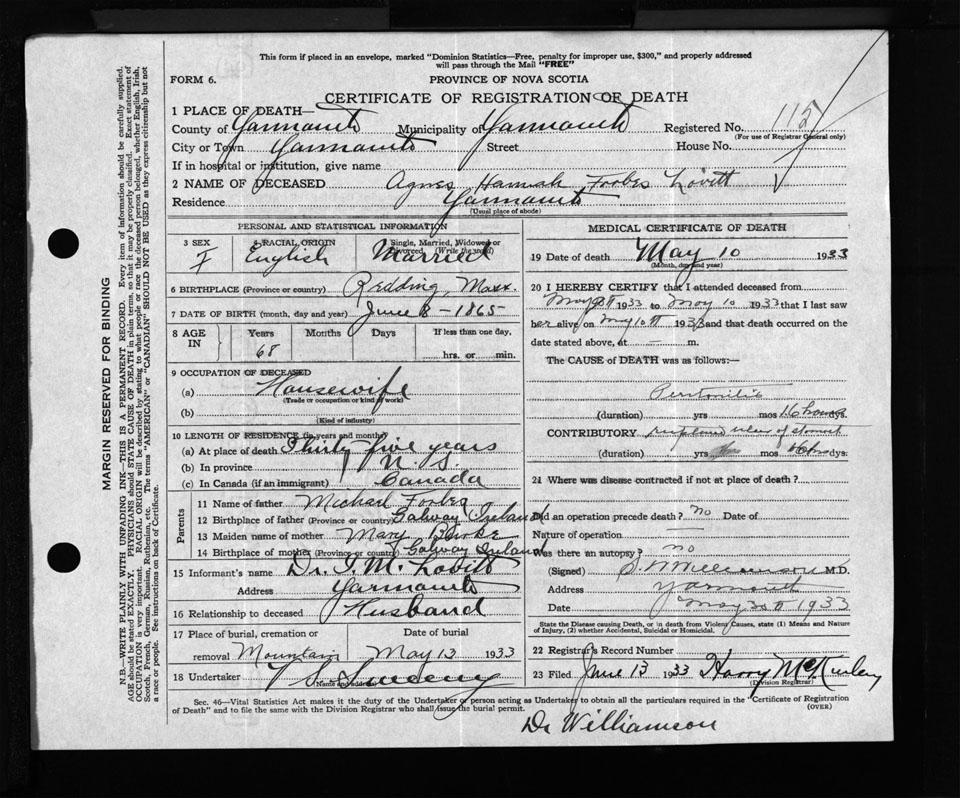 This form if placed in an envelope, marked "Dominion Statistics—Free, penalty for improper use, $300," and properly addressed
will pass through the Mail "FREE"
FORM 6.
PROVINCE OF NOVA SCOTIA
CERTIFICATE OF REGISTRATION OF DEATH
1 PLACE OF DEATH—
County of Yarmouth Municipality of Yarmouth Registered No. 115
(For use of Registrar General only)
City or Town Yarmouth Street House No.
If in hospital or institution, give name
2 NAME OF DECEASED Agnes Hannah Forbes Lovitt
Residence Yarmouth
(Usual place of abode)
PERSONAL AND STATISTICAL INFORMATION
3 SEX F
4 RACIAL ORIGIN English
Single, Married, Widowed or
Divorced (Write the word)
Married
6 BIRTHPLACE (Province or country) Redding, Mass.
7 DATE OF BIRTH (month, day and year) June 8 – 1865
8 AGE IN Years 68 Months Days If less than one day, hrs. or min.
9 OCCUPATION OF DECEASED
(a) Housewife
(Trade or occupation or kind of work)
(b)
(Kind of industry)
10 LENGTH OF RESIDENCE (in years and months)
(a) At place of death Thirty five years
(b) In province N. S.
(c) In Canada (if an immigrant) Canada
Parents
11 Name of father Michael Forbes
12 Birthplace of father (Province or country) Galway Ireland
13 Maiden name of mother Mary Burke
14 Birthplace of mother (Province or country) Galway Ireland
15 Informant's name Dr. I. M. Lovitt
Address Yarmouth
16 Relationship to deceased Husband
17 Place of burial, cremation or removal Mountain
Date of burial May 13 1933
18 Undertaker V S Sweeny
Name and address
MEDICAL CERTIFICATE OF DEATH
19 Date of death May 10 1933
(Month, day and year)
20 I HEREBY CERTIFY that I attended deceased from
May 1933 to May 10 1933 that I last saw
her alive on May 10th 1933 and that death occurred on
date stated above, at — m.
The CAUSE of DEATH was as follows:—
Peritonitis
(duration) yrs mos 16 hours
CONTRIBUTORY ruptured ulcer of stomach
(duration) yrs mos dys.
21 Where was disease contracted if not at place of death?
Did an operation precede death? no Date of
Nature of operation —
Was there an autopsy? no
(Signed) S. Williamson M.D.
Address Yarmouth
Date May 1933
State the Disease causing Death, or in death from Violent Causes, state (1) Means and Nature
of Injury, (2) whether Accidental, Suicidal or Homicidal.
22 Registrar's Record Number
23 Filed June 13 1933 Harry McKinley
(Division Registrar)
Sec. 46—Vital Statistics Act makes it duty of the Undertaker or person acting as Undertaker to obtain all the particulars required in the "Certificate of Registration
of Death" and to file the same with the Division Registrar who shall issue the burial permit.
(OVER)
Dr Williamson
MARGIN RESERVED FOR BINDING
N.B.—WRITE PLAINLY WITH UNFADING INK—THIS IS A PERMANENT RECORD. Every item of information should be carefully supplied.
AGE should be stated EXACTLY. PHYSICIANS should STATE CAUSE OF DEATH in plain terms, so that it may be properly classified. Exact statement of
OCCUPATION is very important. RACIAL ORIGIN will be described by stating to what people or race the deceased person belonged, whether English, Irish,
Scotch, French, German, Russian, Ruthenian, etc. The terms "AMERICAN" or "CANADIAN" SHOULD NOT BE USED as they express citizenship but not
a race or people. See instructions on back of Certificate.